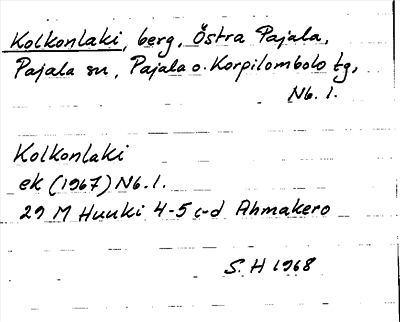 Kolkonlaki, berg, Östra Pajala,
Pajala sn, Pajala o. Korpilombolo tg,
Nb. l.
Kolkonlaki
ek (1967) Nb. l.
29 M Huuki 4-5 c-d Ahmakero
S. H 1968